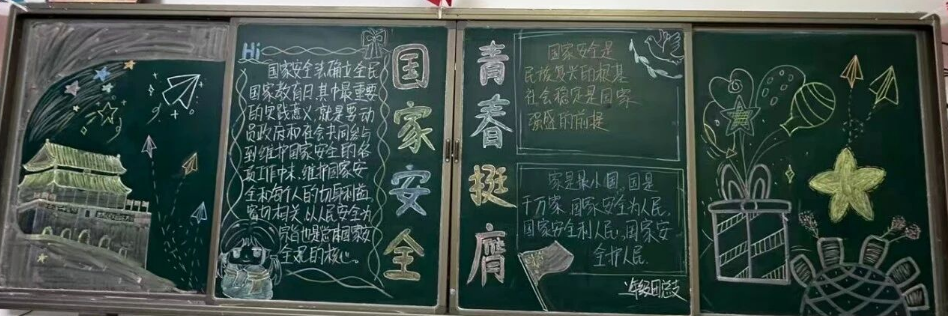 Hi
国家安全法确立全民
国家教育日其中最重要
的实践意义,就是要动
员政府和社会共同参与
到维护国家安全的各
项工作中来,维护国家安
全和每个人的切身利益
密切相关,以人民安全为
宗旨也是总体国家安
全观的核心。
国家安全
青春挺膺
国家安全是
民族复兴的根基
社会稳定是国家
强盛的前提
家是最小国,国是
千万家,国家安全为人民,
国家安全利人民,国家安
全护人民.